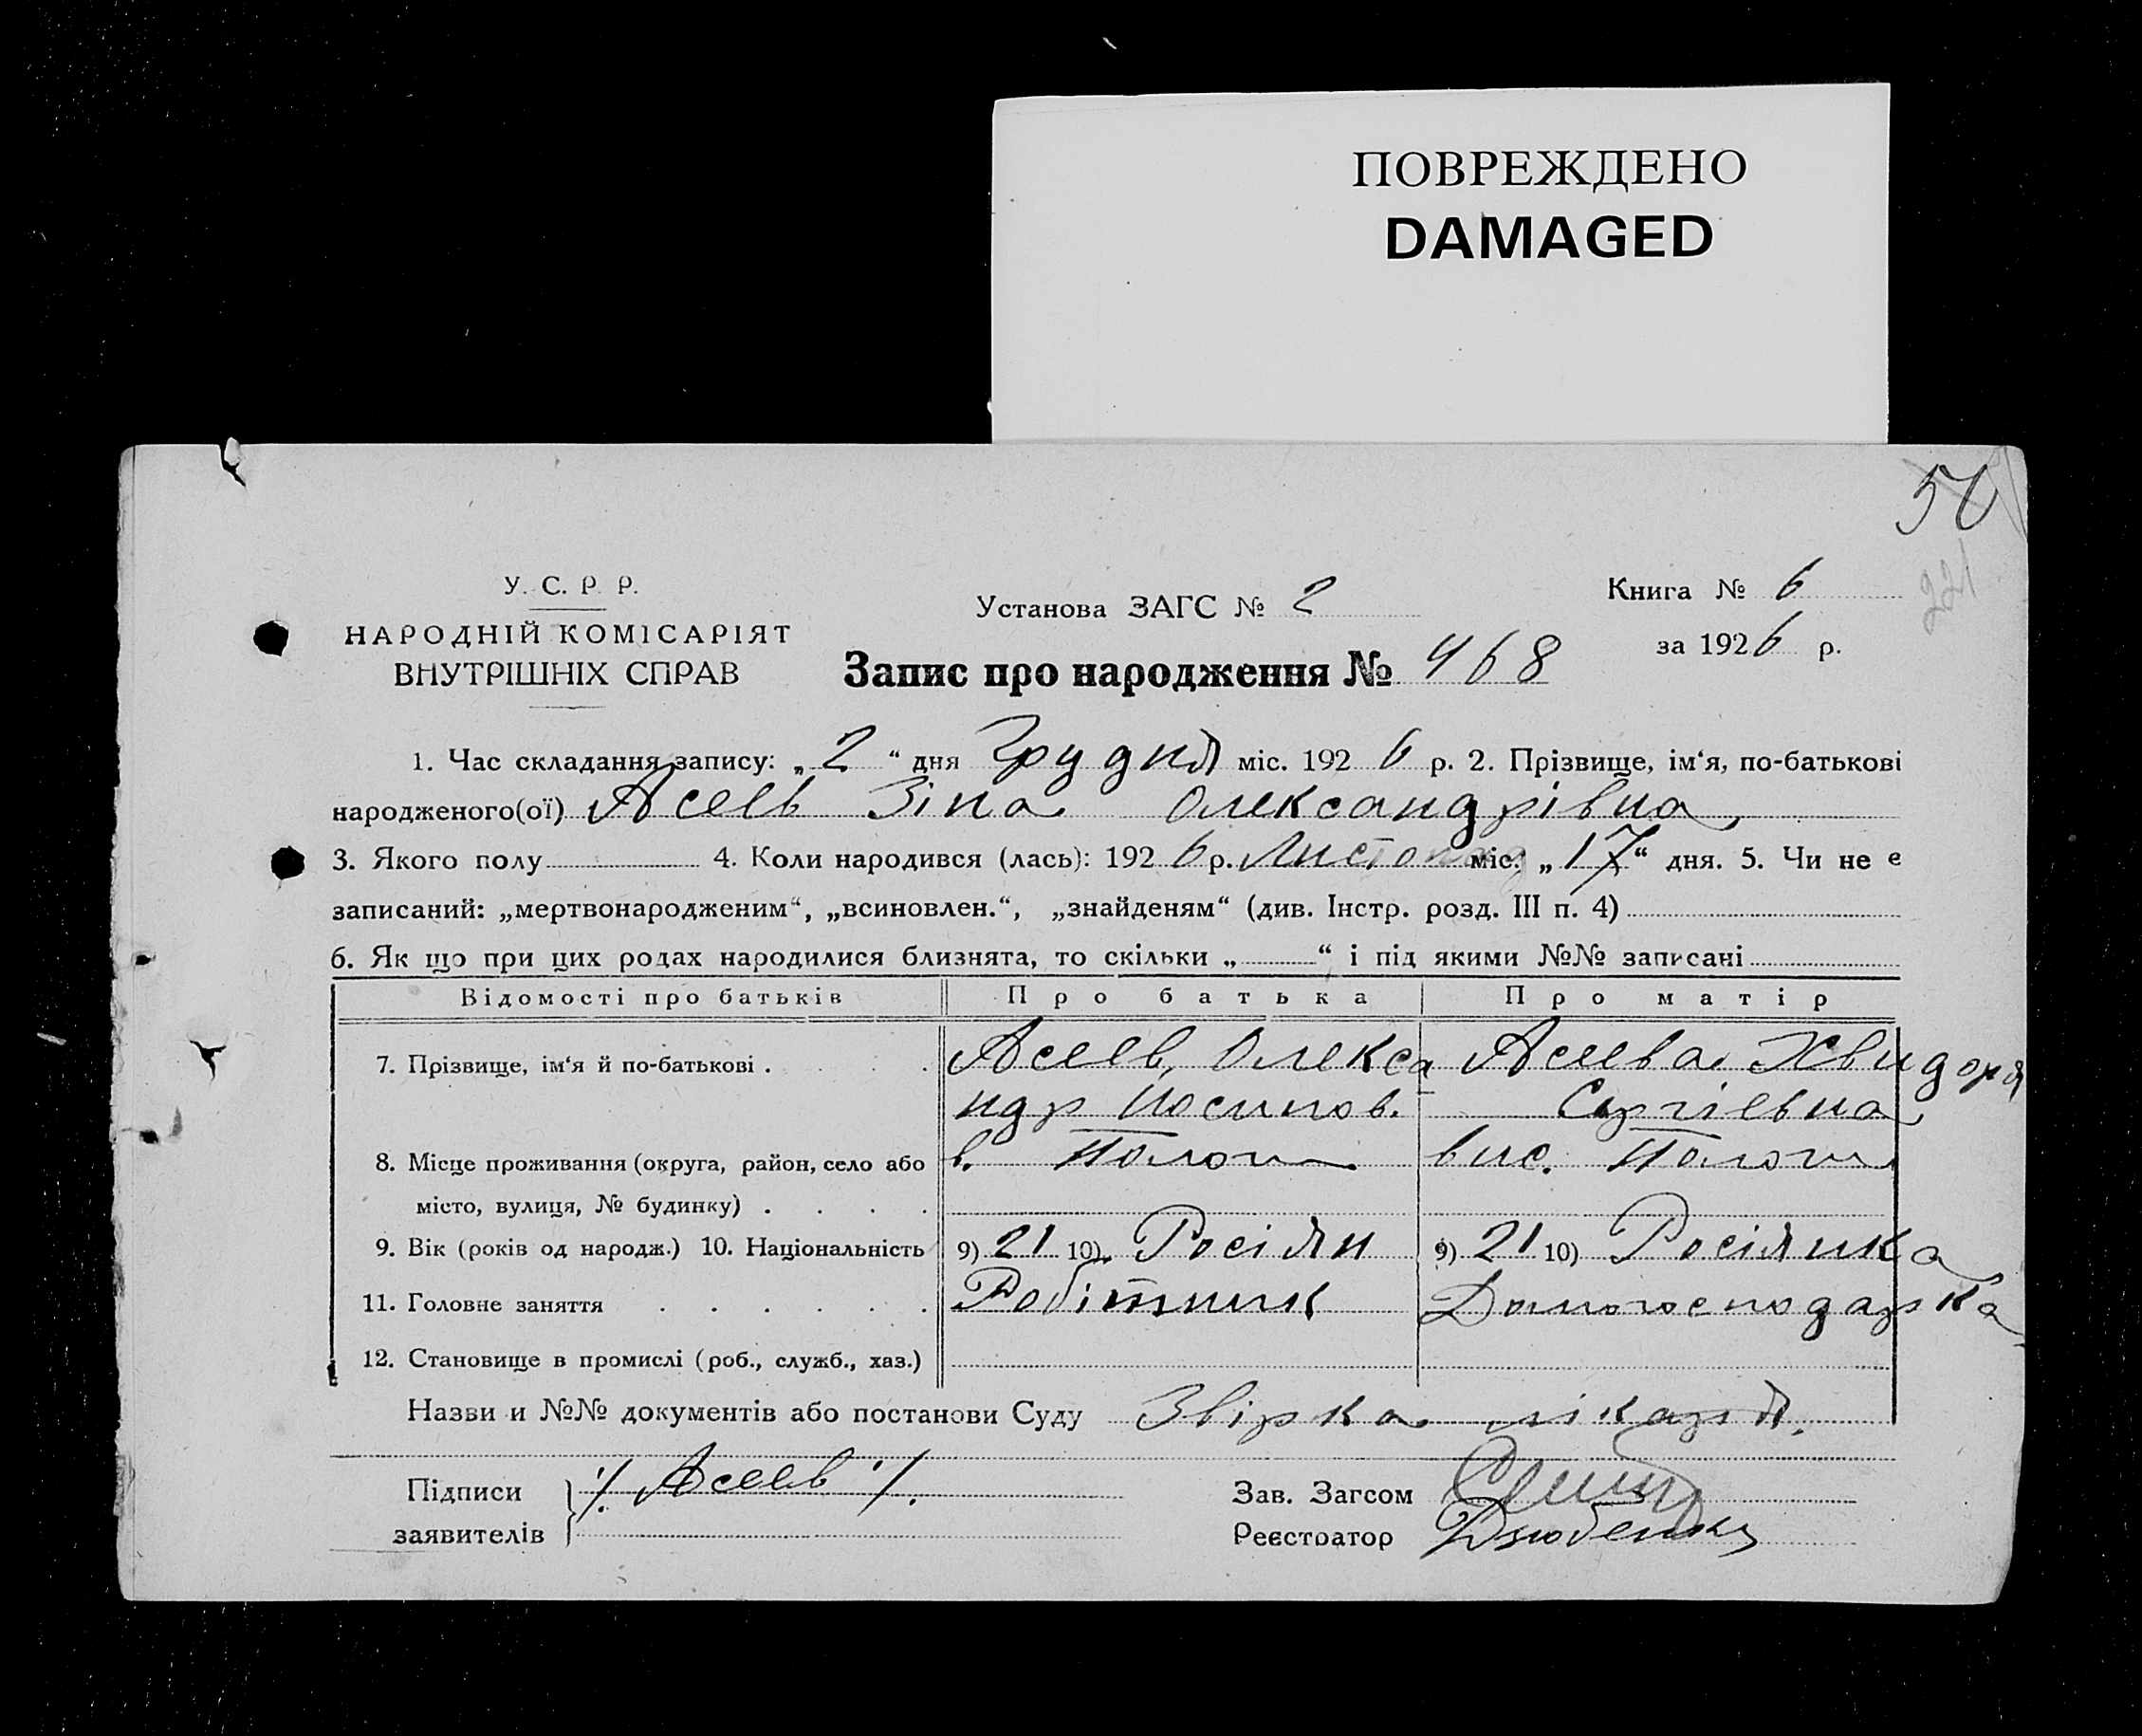 ПОВРЕЖДЕНО
DAMAGED
50
221
У. С. Р. Р.
НАРОДНІЙ КОМІСАРІЯТ
ВНУТРІШНІХ СПРАВ
Установа ЗАГС № 2
Книга № 6
за 1926 р.
Запис про народження № 468
1. Час складання запису: „2“ дня Грудня міс. 1926 р. 2. Прізвище, ім‘я, по-батькові
народженого(ої) Асеев Зіна Олександрівна
3. Якого полу 4. Коли народився (лась): 1926 р. Листопад міс. „17“ дня. 5. Чи не е
записаний: „мертвонародженим“, „всиновлен.“, „знайденям“ (див. Інстр. розд. III п. 4)
6. Як що при цих родах народилися близнята, то скільки „ “ і під якими №№ записані
Відомості про батьків Про батька Про матір
7. Прізвище, ім‘я й по-батькові . . . . Асеев, Олекса Асеева Хвидоря
ндр Йосипов. Сергіевна
8. Місце проживання (округа, район, село або в. Пологи вис. Пологи
місто, вулиця, № будинку) . . . .
9. Вік (років од народж.) 10. Національність 9) 21 10) Росіян 9) 21 10) Росіянка
11. Головне заняття . . . . . . Робітник Домогосподарка
12. Становище в промислі (роб., служб., хаз.)
Назви и №№ документів або постанови Суду Звірка лікаря.
Підписи ·/. Асеев ·/.
заявителів
Зав. Загсом
Реєстратор Дзюбенко